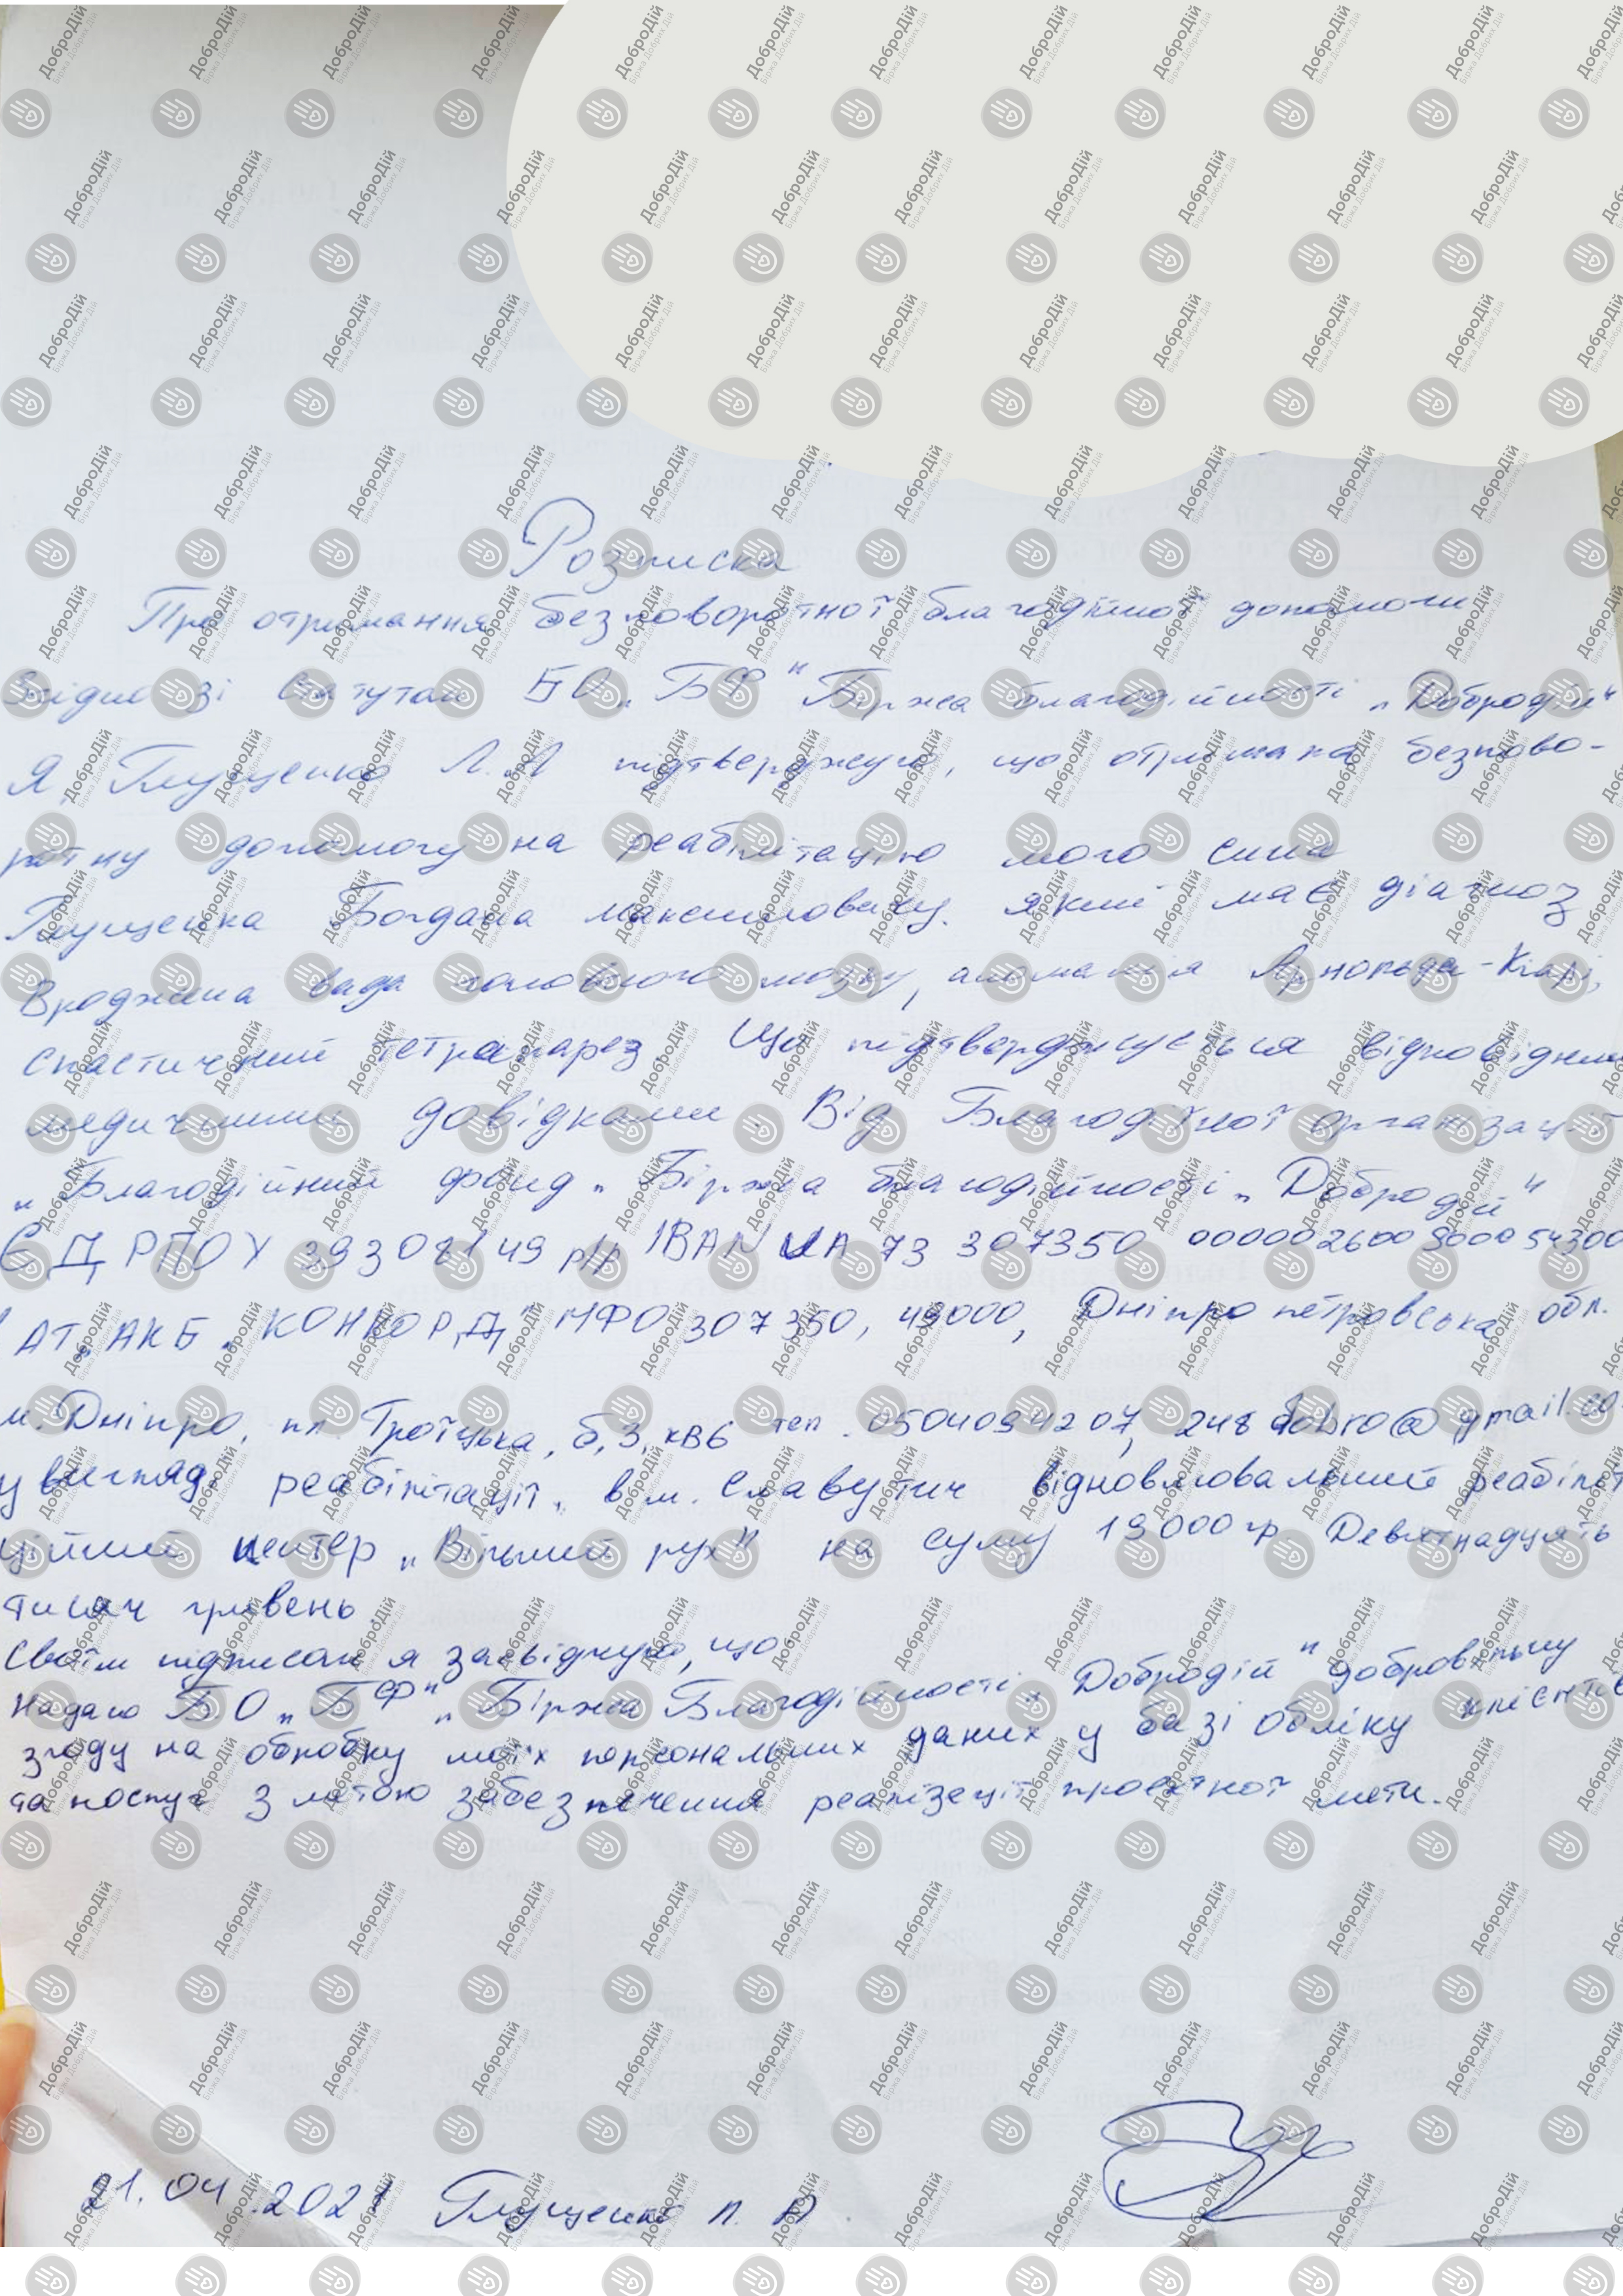 Розписка
Про отримання безповоротної благодійної допомоги
Згідно зі Статутом БО „БФ "Біржа благодійності „Добродій"
Я, Глущенко Л.А підтверджую, що отримала безпово-
ротну допомогу на реабілітацію мого сина
Глущенка Богдана Максимовичу. який має діагноз
Вроджена вада головного мозку, аномалія Арнольда-Кіарі,
спастичний тетрапарез. Що підтверджується відповідним
медичними довідками. Від Благодійної організації
„Благодійний фонд „Біржа благодійності „Добродій"
ЄДРПОУ 39308149 р/р IBAN UA 73 307350 0000026009000 54300
АТ „АКБ „КОНКОРД" МФО 307350, 49000, Дніпропетровська обл.
м. Дніпро, пл. Троїцька, б, 3, кв6 тел. 0504094207, 248dobro@gmail.co
у вигляді реабілітації, в м. Славутич відновлювальний реабіліт
ційний центер „Вільний рух" на суму 19000 гр Девятнадцять
тисяч гривень
Своїм підписом я засвідчую, що
Надаю БО „БФ" „Біржа Благодійності „Добродій" добровільну
згоду на обробку моїх персональних даних у базі обліку клієнтів
та послуг з метою забезпечення реалізації проектної мети.
21.04.2021 Глущенко Л. А
ДоброДій
Біржа Добрих Дій